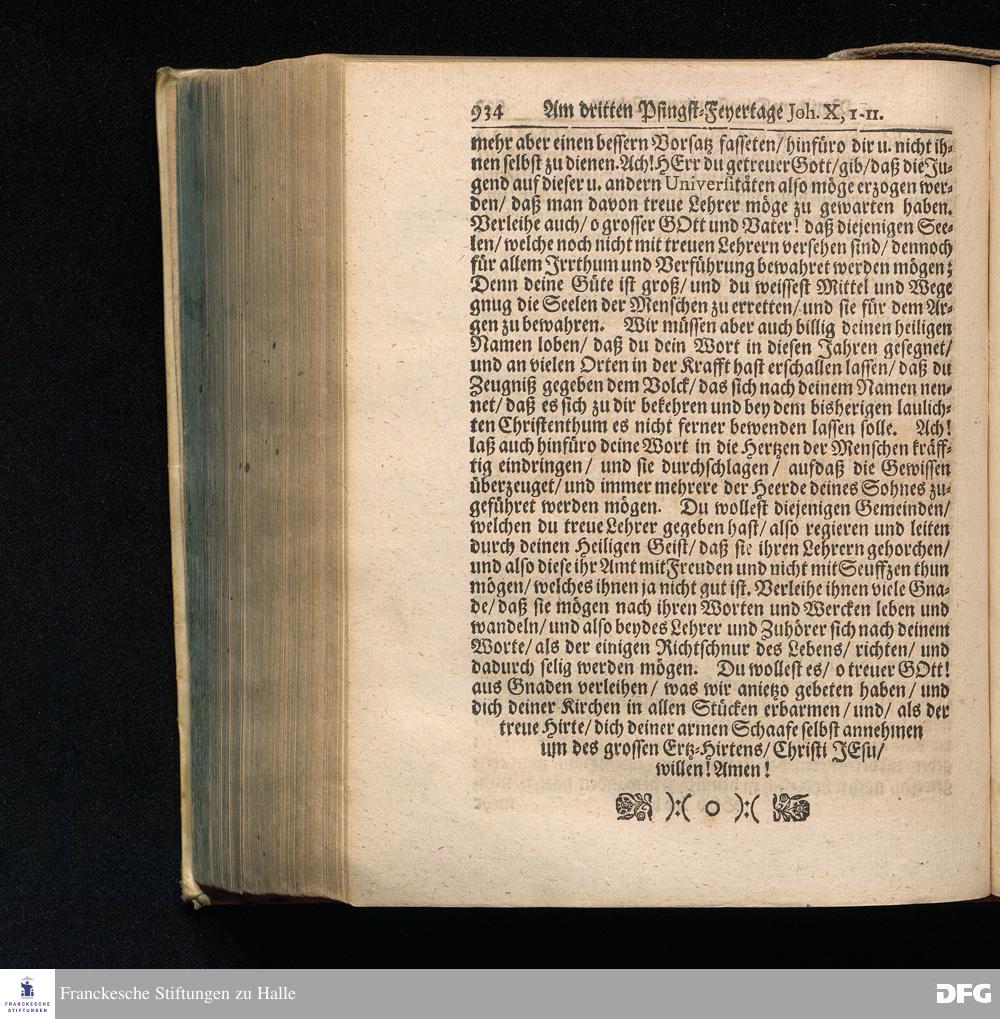 934 Am dritten Pfingst-Feyertage Joh. X, 1-11.
mehr aber einen bessern Vorsatz fasseten/ hinfüro dir u. nicht ih-
nen selbst zu dienen. Ach! HErr du getreuer Gott/ gib/ daß die Ju-
gend auf dieser u. andern Universitäten also möge erzogen wer-
den/ daß man davon treue Lehrer möge zu gewarten haben.
Verleihe auch/ o grosser GOtt und Vater! daß diejenigen See-
len/ welche noch nicht mit treuen Lehrern versehen sind/ dennoch
für allem Irrthum und Verführung bewahret werden mögen;
Denn deine Güte ist groß/ und du weissest Mittel und Wege
gnug die Seelen der Menschen zu erretten/ und sie für dem Ar-
gen zu bewahren. Wir müssen aber auch billig deinen heiligen
Namen loben/ daß du dein Wort in diesen Jahren gesegnet/
und an vielen Orten in der Krafft hast erschallen lassen/ daß du
Zeugniß gegeben dem Volck/ das sich nach deinem Namen nen-
net/ daß es sich zu dir bekehren und bey dem bisherigen laulich-
ten Christenthum es nicht ferner bewenden lassen solle. Ach!
laß auch hinfüro deine Wort in die Hertzen der Menschen kräff-
tig eindringen/ und sie durchschlagen/ aufdaß die Gewissen
überzeuget/ und immer mehrere der Heerde deines Sohnes zu-
geführet werden mögen. Du wollest diejenigen Gemeinden/
welchen du treue Lehrer gegeben hast/ also regieren und leiten
durch deinen Heiligen Geist/ daß sie ihren Lehrern gehorchen/
und also diese ihr Amt mit Freuden und nicht mit Seuffzen thun
mögen/ welches ihnen ja nicht gut ist. Verleihe ihnen viele Gna-
de/ daß sie mögen nach ihren Worten und Wercken leben und
wandeln/ und also beydes Lehrer und Zuhörer sich nach deinem
Worte/ als der einigen Richtschnur des Lebens/ richten/ und
dadurch selig werden mögen. Du wollest es/ o treuer GOtt!
aus Gnaden verleihen/ was wir anietzo gebeten haben/ und
dich deiner Kirchen in allen Stücken erbarmen/ und/ als der
treue Hirte/ dich deiner armen Schaafe selbst annehmen
um des grossen Ertz-Hirtens/ Christi JEsu/
willen! Amen!
):( o ):(
FRANCKESCHE
STIFTUNGEN
Franckesche Stiftungen zu Halle
DFG